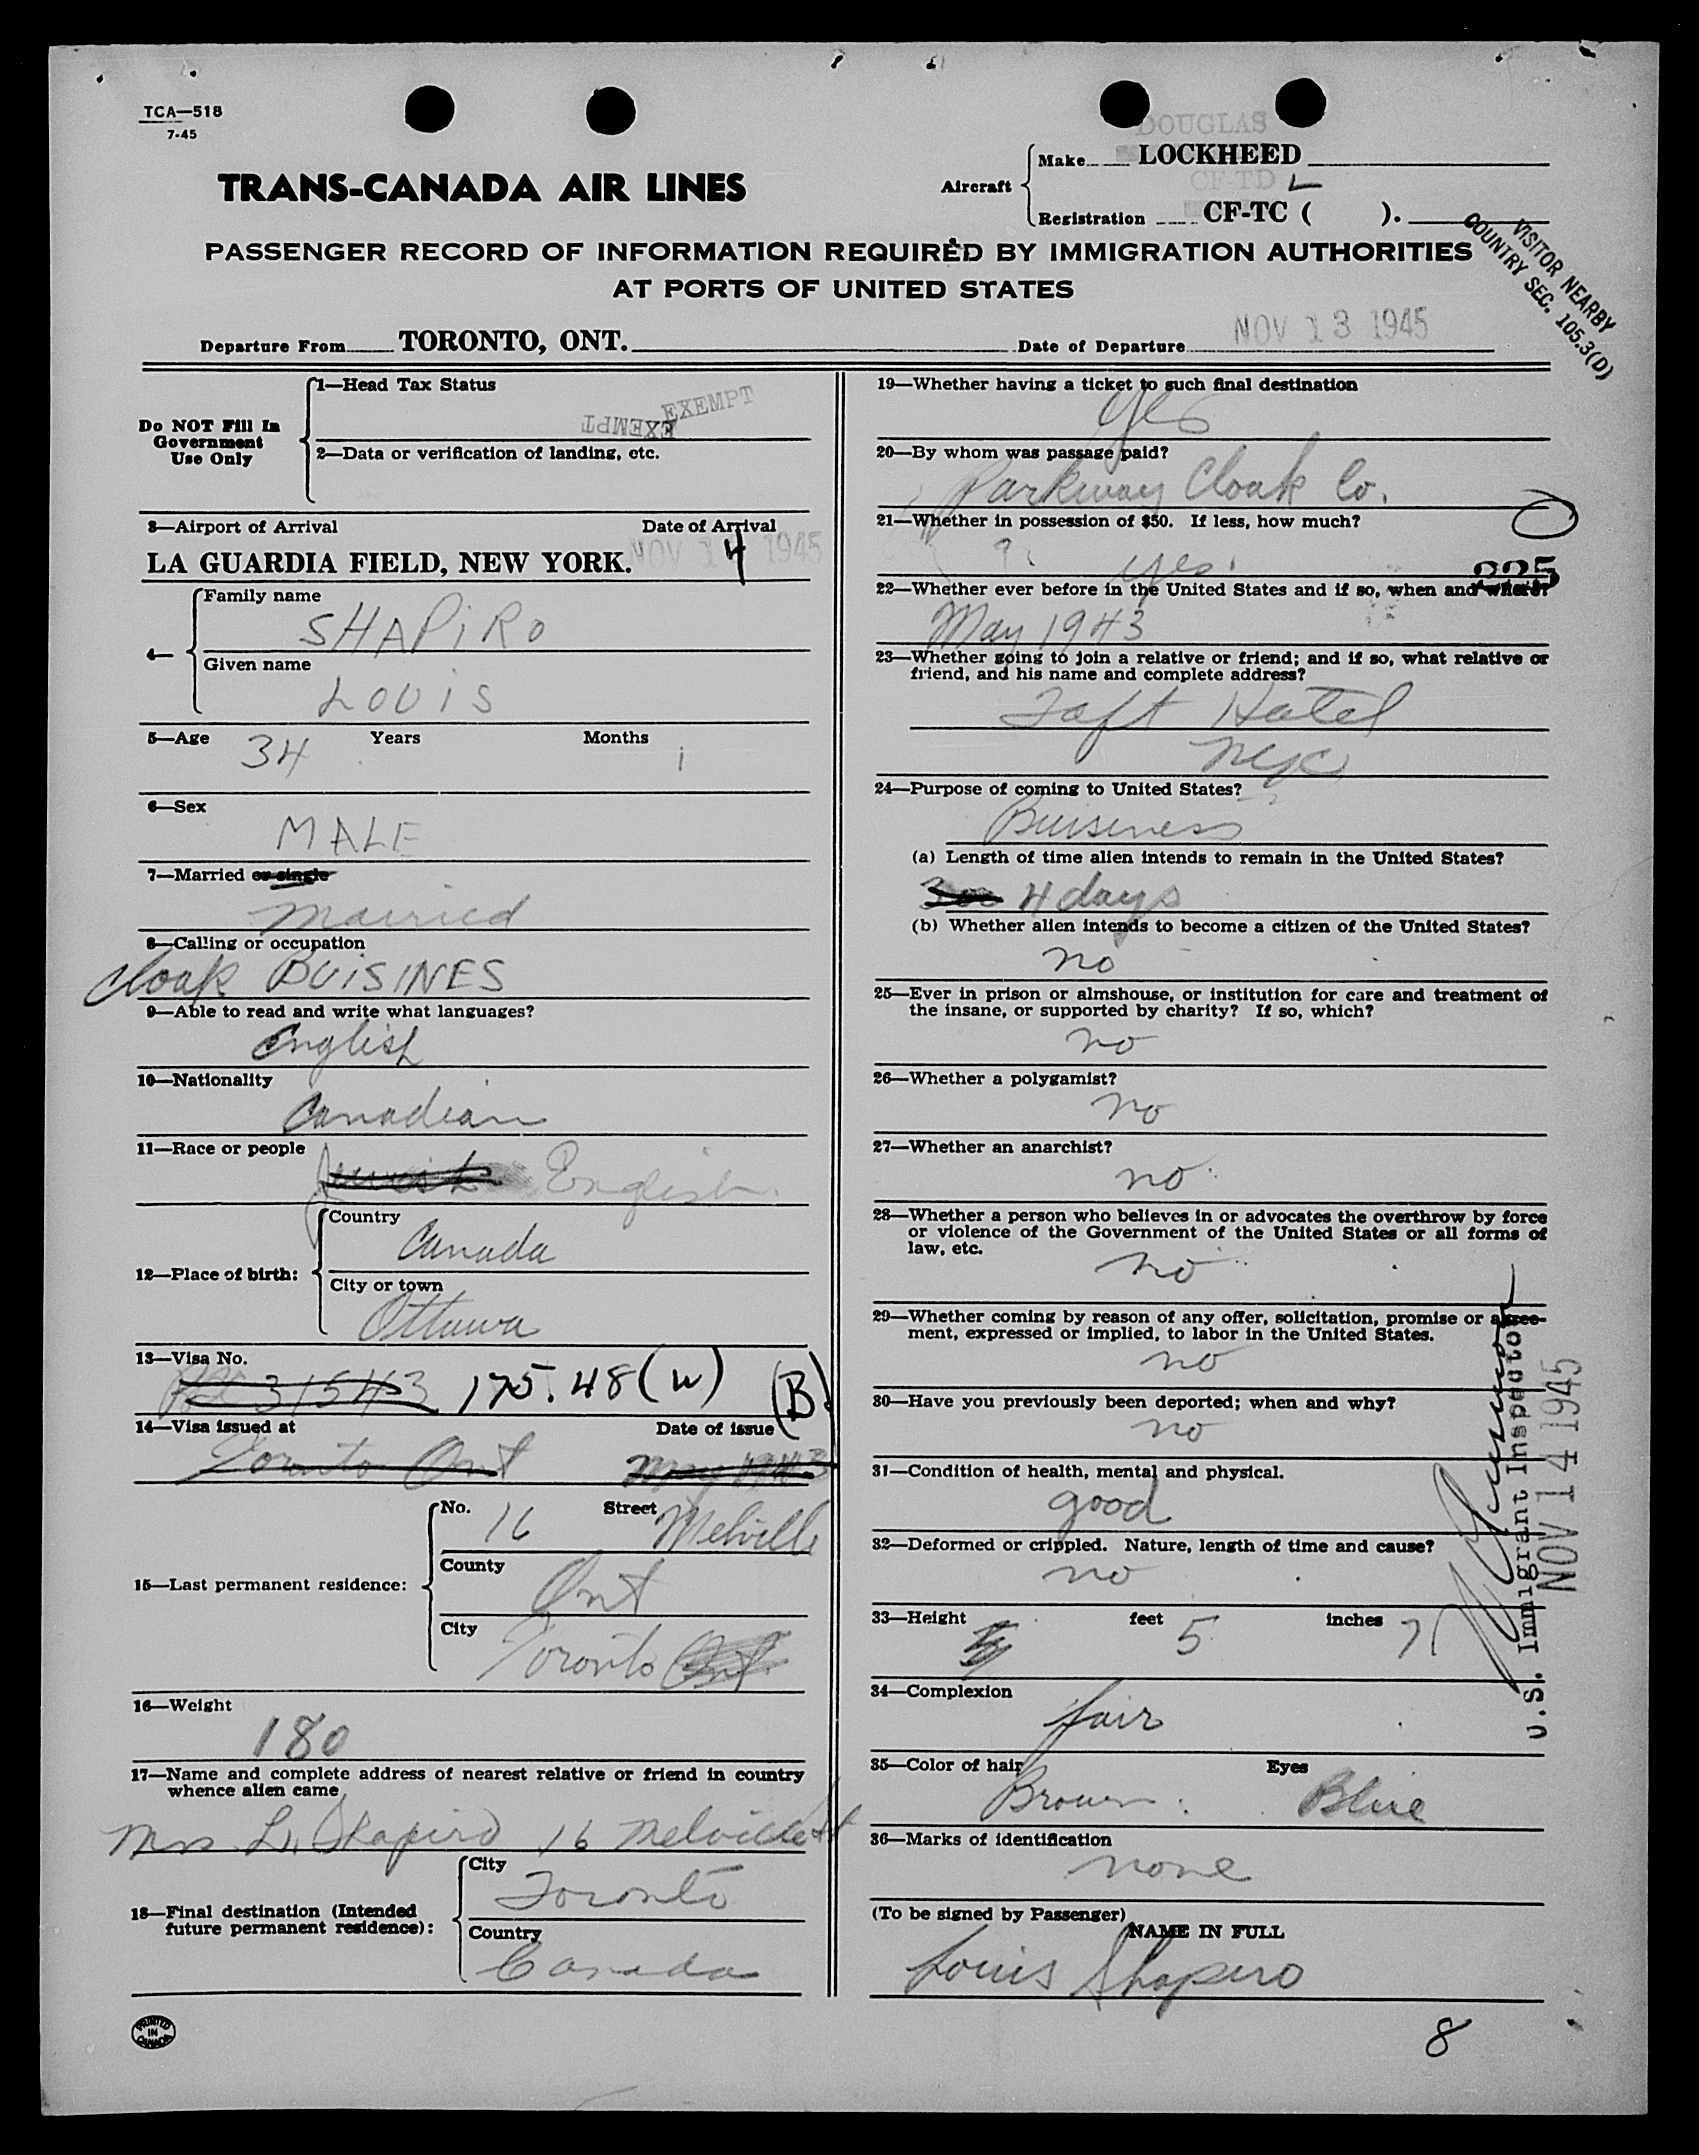 TCA—518
7-45
DOUGLAS
Make LOCKHEED
TRANS-CANADA AIR LINES
Aircraft
CF-TD L
Registration CF-TC ( ).
VISITOR NEARBY
COUNTRY SEC. 105.3(D)
PASSENGER RECORD OF INFORMATION REQUIRED BY IMMIGRATION AUTHORITIES
AT PORTS OF UNITED STATES
Departure From TORONTO, ONT. Date of Departure NOV 13 1945
Do NOT Fill In
Government
Use Only
1—Head Tax Status
EXEMPT EXEMPT
2—Data or verification of landing, etc.
3—Airport of Arrival Date of Arrival
LA GUARDIA FIELD, NEW YORK. NOV 14 1945
4—
Family name
SHAPiRo
Given name
LOUiS
5—Age 34 Years Months 1
6—Sex
MALE
7—Married or single
Married
8—Calling or occupation
Cloak BUISINES
9—Able to read and write what languages?
English
10—Nationality
Canadian
11—Race or people
Jewish English
12—Place of birth:
Country
Canada
City or town
Ottawa
13—Visa No.
31543 175.48 (W) (B)
14—Visa issued at Date of issue
Toronto Ont May 1943
15—Last permanent residence:
No. 16 Street Melville
County
Ont
City
Toronto Ont
16—Weight
180
17—Name and complete address of nearest relative or friend in country
whence alien came
Mrs L. Shapiro 16 Melville St
18—Final destination (Intended
future permanent residence):
City
Toronto
Country
Canada
PRINTED
IN
CANADA
19—Whether having a ticket to such final destination
Yes
20—By whom was passage paid?
Parkway Cloak Co.
21—Whether in possession of $50. If less, how much?
? yes.
22—Whether ever before in the United States and if so, when and where?
May 1943
23—Whether going to join a relative or friend; and if so, what relative or
friend, and his name and complete address?
Taft Hotel
NYC
24—Purpose of coming to United States?
Buisness
(a) Length of time alien intends to remain in the United States?
4 days
(b) Whether alien intends to become a citizen of the United States?
no
25—Ever in prison or almshouse, or institution for care and treatment of
the insane, or supported by charity? If so, which?
no
26—Whether a polygamist?
no
27—Whether an anarchist?
no
28—Whether a person who believes in or advocates the overthrow by force
or violence of the Government of the United States or all forms of
law, etc.
no
29—Whether coming by reason of any offer, solicitation, promise or agree-
ment, expressed or implied, to labor in the United States.
no
30—Have you previously been deported; when and why?
no
31—Condition of health, mental and physical.
good
32—Deformed or crippled. Nature, length of time and cause?
no
33—Height feet 5 inches 7
34—Complexion
fair
35—Color of hair Eyes
Brown Blue
36—Marks of identification
none
(To be signed by Passenger)
NAME IN FULL
Louis Shapiro
U.S. Immigrant Inspector
NOV 14 1945
8